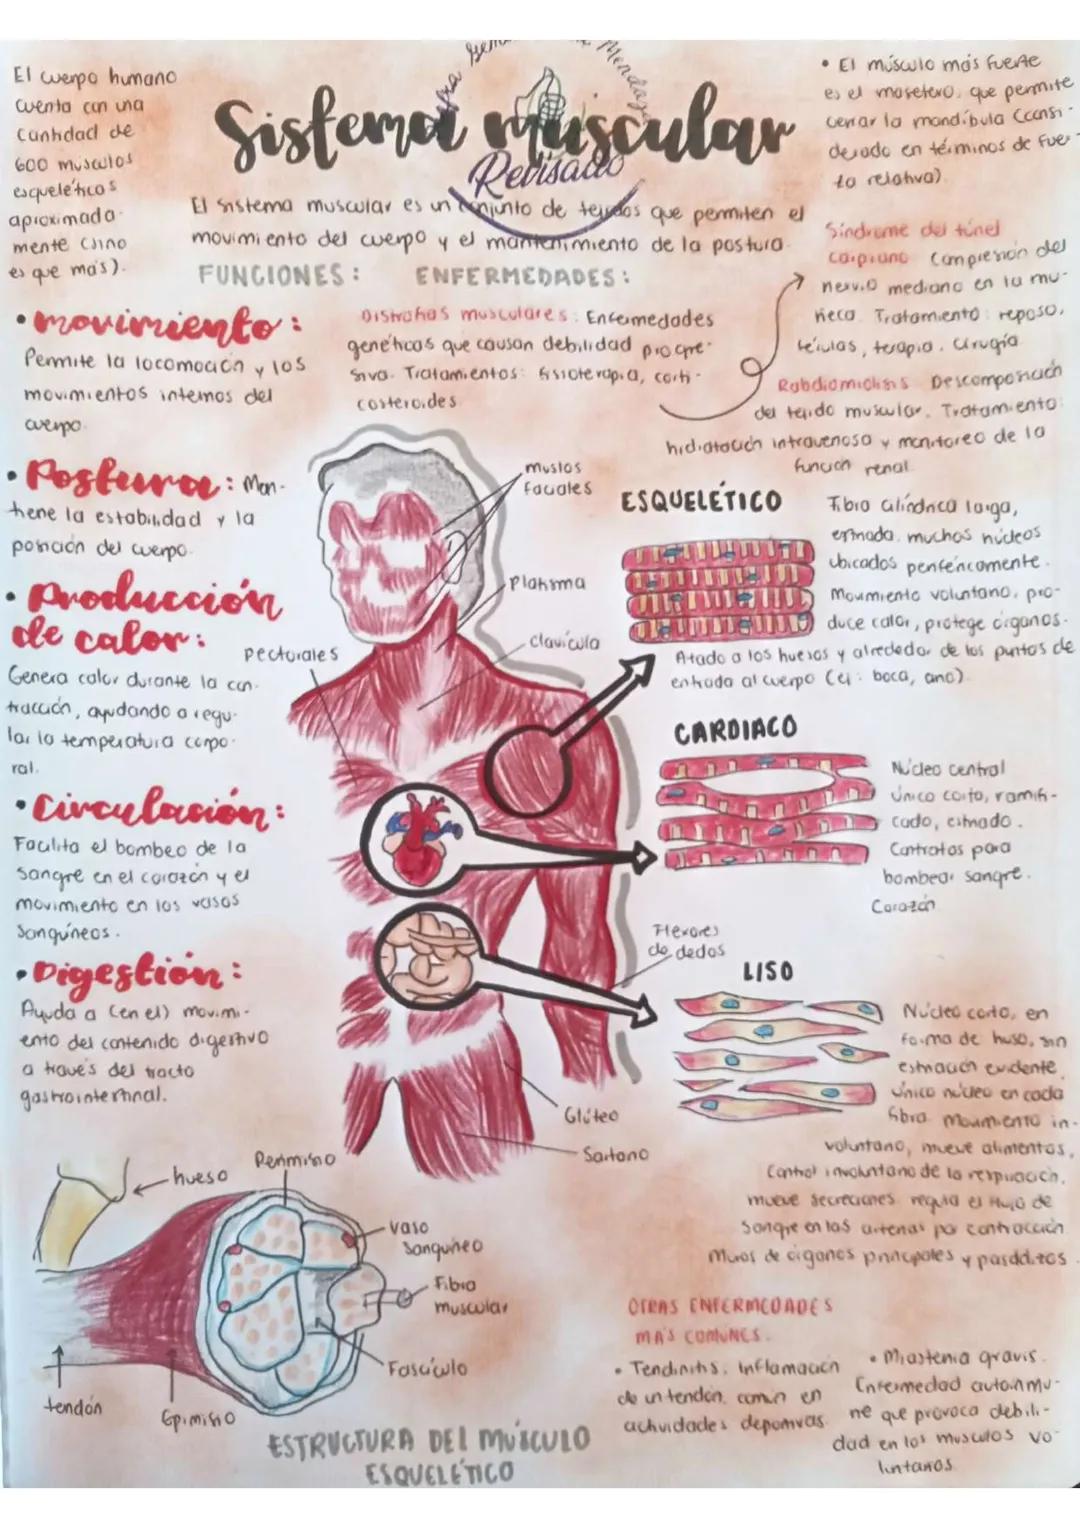 El cuerpo humano
cuenta con una
cantidad de
600 músculos
esqueléticos
aproximada-
mente (sino
es que más).
Sistema muscular
Revisado
El sistema muscular es un conjunto de tejidos que permiten el
movimiento del cuerpo y el mantenimiento de la postura.
• El músculo más fuerte
es el masetero, que permite
cerrar la mandíbula (consi-
derado en términos de fuer-
za relativa).
FUNCIONES:
• movimiento:
Permite la locomoción y los
movimientos internos del
cuerpo.
• Postura: Man-
tiene la estabilidad y la
posición del cuerpo.
• Producción
de calor:
Genera calor durante la con-
tracción, ayudando a regu-
lar la temperatura corpo-
ral.
• Circulación:
Facilita el bombeo de la
sangre en el corazón y el
movimiento en los vasos
sanguíneos.
• Digestión:
Ayuda a (en el) movimi-
ento del contenido digestivo
a través del tracto
gastrointestinal.
ENFERMEDADES:
Distrofias musculares: Enfermedades
genéticas que causan debilidad progre-
siva. Tratamientos: fisioterapia, corti-
costeroides
Síndrome del túnel
carpiano Compresión del
nervio mediano en la mu-
ñeca. Tratamiento: reposo,
férulas, terapia, cirugía
Rabdiomiolisis Descomposición
del tejido muscular. Tratamiento:
hidratación intravenosa y monitoreo de la
función renal
muslos
faciales
Platisma
clavícula
Pectorales
Flexores
de dedos
Glúteo
Sartorio
ESQUELÉTICO
Fibra cilíndrica larga,
estriada, muchos núcleos
ubicados periféricamente.
Movimiento voluntario, pro-
duce calor, protege órganos.
Atado a los huesos y alrededor de los puntos de
entrada al cuerpo (ej: boca, ano).
CARDIACO
Núcleo central
único corto, ramifi-
cado, estriado.
Contratos para
bombear sangre.
Corazón
LISO
Núcleo corto, en
forma de huso, sin
estriación evidente
único núcleo en cada
fibra. Movimiento in-
voluntario, mueve alimentos,
Control involuntario de la respiración,
mueve secreciones, regula el flujo de
sangre en las arterias por contracción
Muros de órganos principales y
hueso
Perimisio
vaso
sanguíneo
Fibra
muscular
Fascículo
tendón
Epimisio
ESTRUCTURA DEL MÚSCULO
ESQUELÉTICO
OTRAS ENFERMEDADES
MÁS COMUNES.
• Tendinitis. Inflamación
de un tendón, común en
actividades deportivas.
• Miastenia gravis.
Enfermedad autoinmu-
ne que provoca debili-
dad en los músculos vo-
luntarios